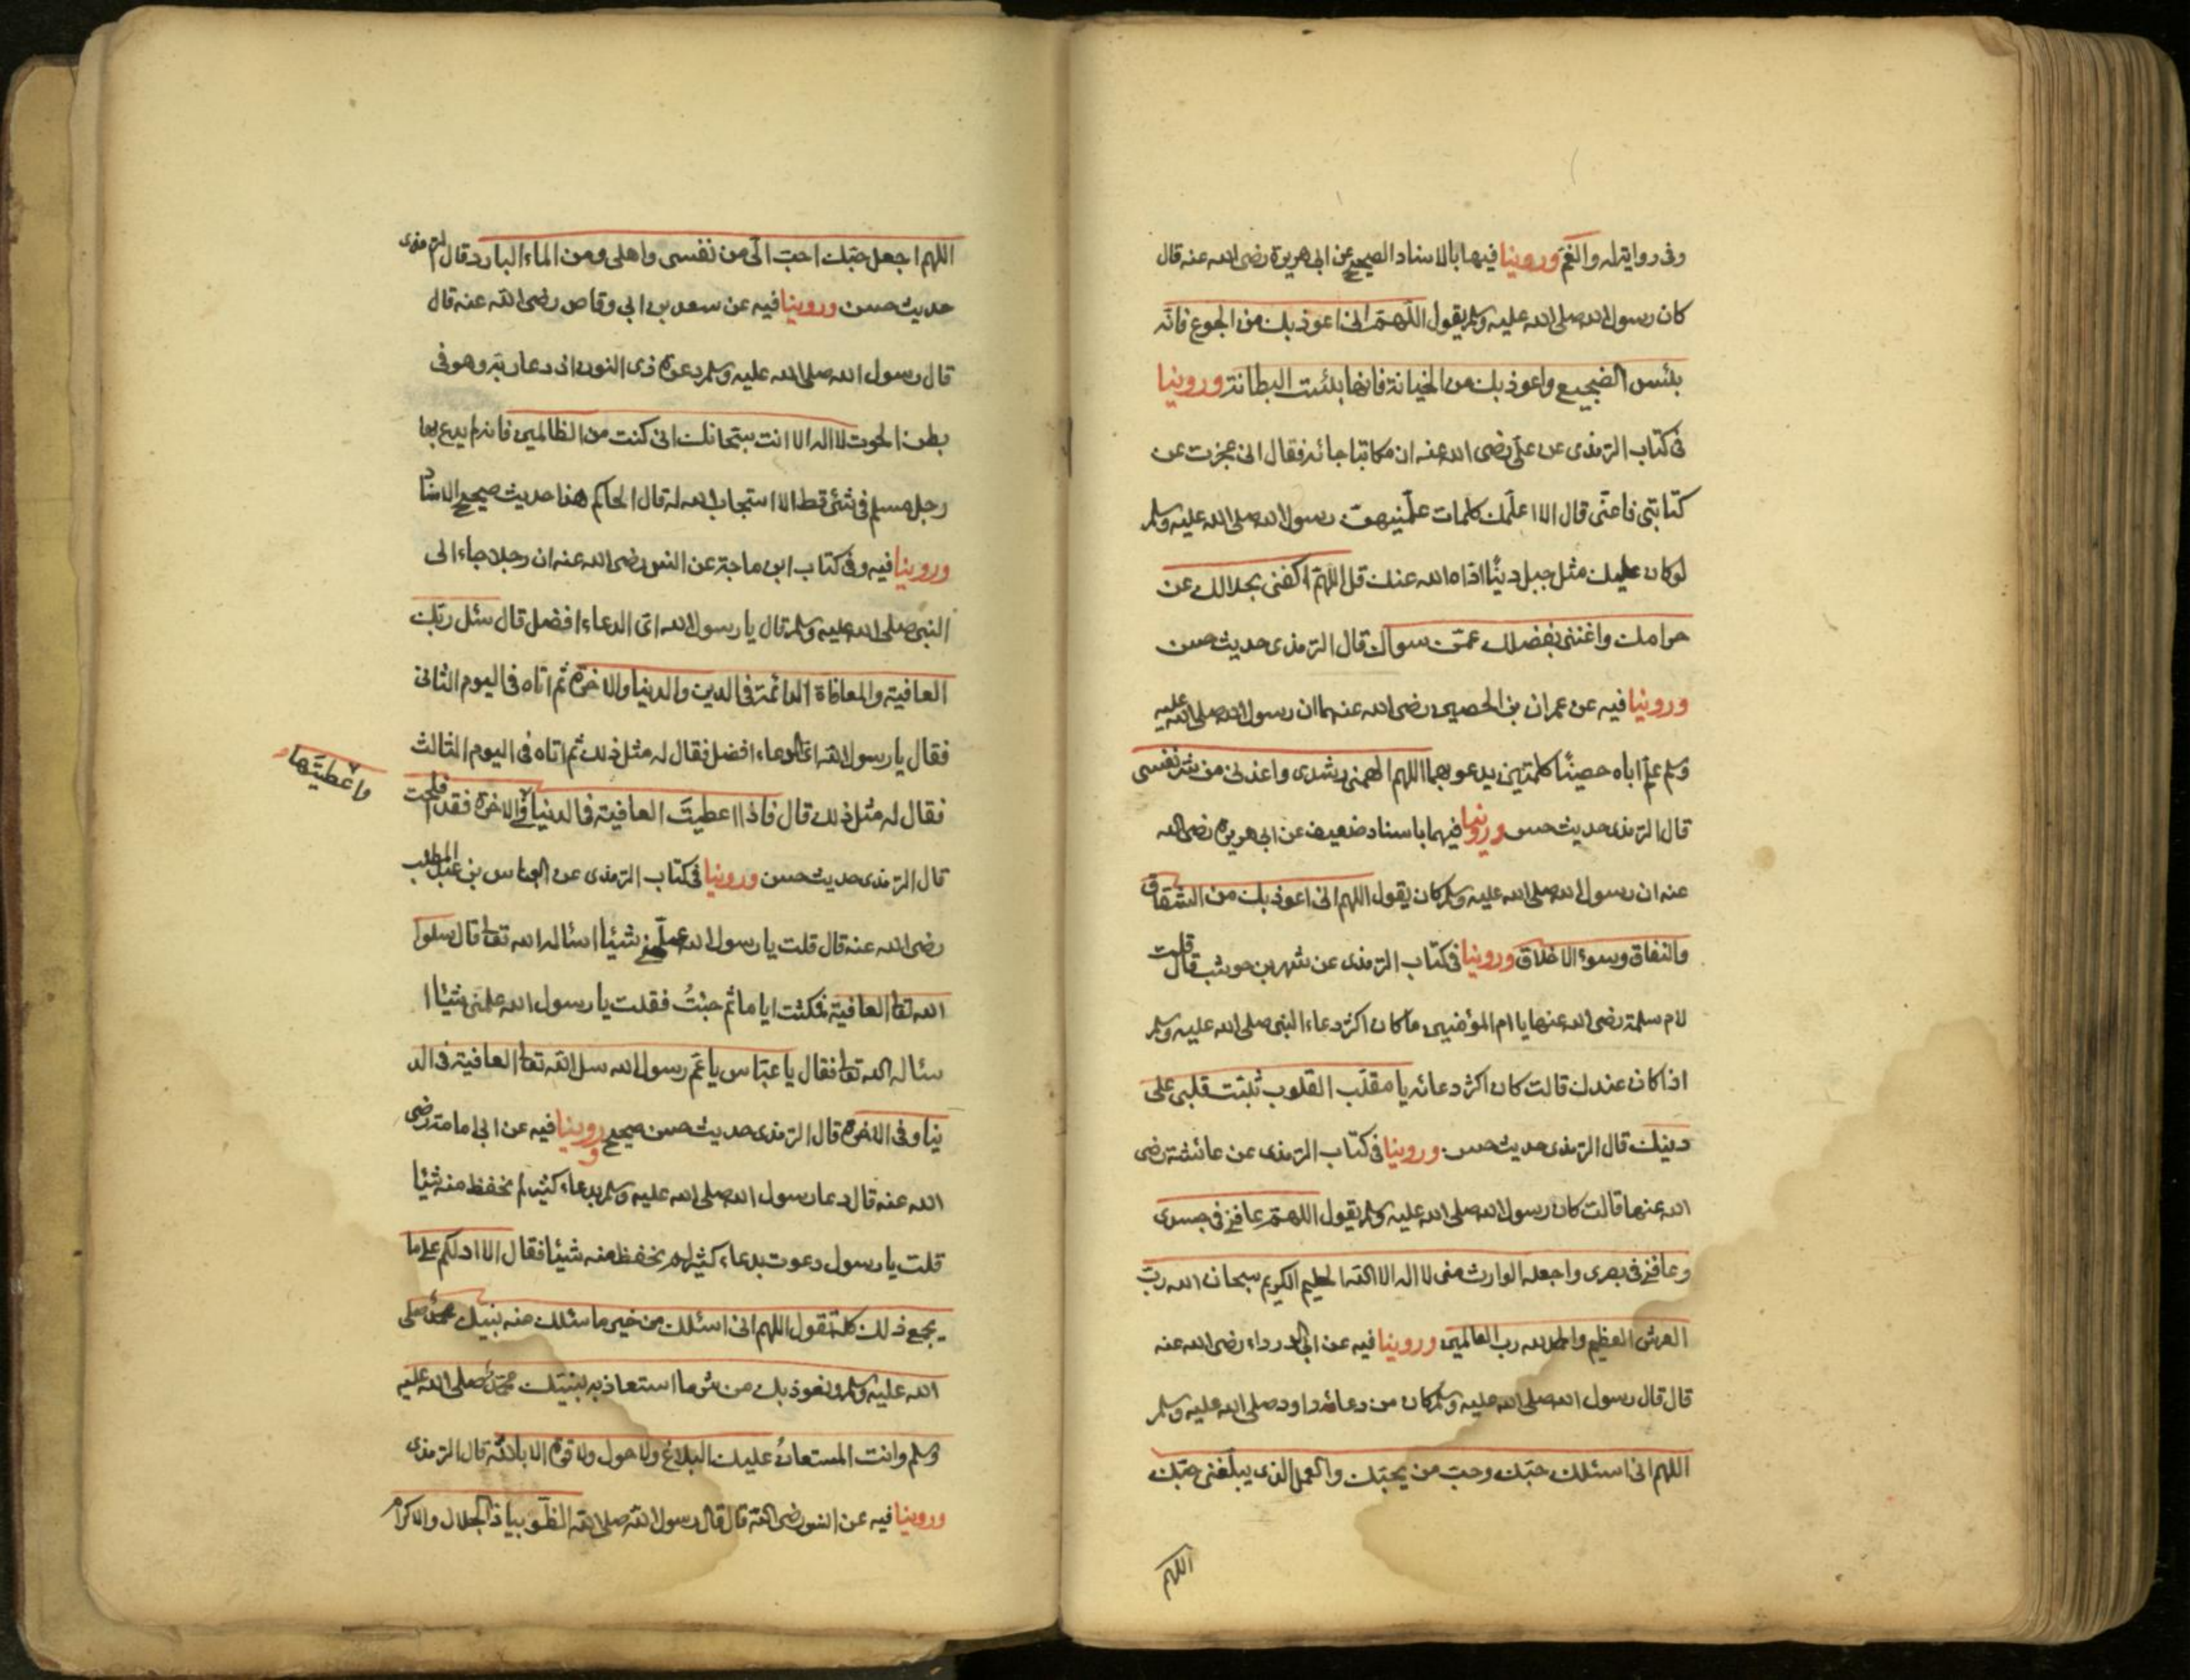 وفى رواية له والغم وروينا فيها بالاسناد الصحيح عن ابى هريرة رضى الله عنه قال
كان رسول الله صلى الله عليه وسلم يقول اللهم انى اعوذ بك من الجوع فانه
بئس الضجيع واعوذ بك من الخيانة فانها بئست البطانة وروينا
فى كتاب الترمذى عن على رضى الله عنه ان مكاتبا جائه فقال انى عجزت عن
كتابتى فاعنى قال الا اعلمك كلمات علمنيهن رسول الله صلى الله عليه وسلم
لو كان عليك مثل جبل دينا اداه الله عنك قل اللهم اكفنى بحلالك عن
حرامك واغننى بفضلك عمن سواك قال الترمذى حديث حسن
وروينا فيه عن عمران بن الحصين رضى الله عنهما ان رسول الله صلى الله عليه
وسلم علم اباه حصينا كلمتين يدعو بهما اللهم الهمنى رشدى واعذنى من شر نفسى
قال الترمذى حديث حسن وروينا فيهما باسناد ضعيف عن ابى هريرة رضى الله
عنه ان رسول الله صلى الله عليه وسلم كان يقول اللهم انى اعوذ بك من الشقاق
والنفاق وسوء الاخلاق وروينا فى كتاب الترمذى عن شهر بن حوشب قال قلت
لام سلمة رضى الله عنها يا ام المؤمنين ما كان اكثر دعاء النبى صلى الله عليه وسلم
اذا كان عندك قالت كان اكثر دعائه يا مقلب القلوب ثبت قلبى على
دينك قال الترمذى حديث حسن وروينا فى كتاب الترمذى عن عائشة رضى
الله عنها قالت كان رسول الله صلى الله عليه وسلم يقول اللهم عافنى فى جسدى
وعافنى فى بصرى واجعله الوارث منى لا اله الا الله الحليم الكريم سبحان الله رب
العرش العظيم والحمد لله رب العالمين وروينا فيه عن ابى الدرداء رضى الله عنه
قال قال رسول الله صلى الله عليه وسلم كان من دعائه داود صلى الله عليه وسلم
اللهم انى اسئلك حبك وحب من يحبك والعمل الذى يبلغنى حبك
اللهم
اللهم اجعل حبك احب الى من نفسى واهلى ومن الماء البارد قال الترمذى
حديث حسن وروينا فيه عن سعد بن ابى وقاص رضى الله عنه قال
قال رسول الله صلى الله عليه وسلم دعوة ذى النون اذ دعا ربه وهو فى
بطن الحوت لا اله الا انت سبحانك انى كنت من الظالمين فانه لم يدع بها
رجل مسلم فى شئ قط الا استجاب الله له قال الحاكم هذا حديث صحيح الاسناد
وروينا فيه وفى كتاب ابن ماجة عن انس رضى الله عنه ان رجلا جاء الى
النبى صلى الله عليه وسلم قال يا رسول الله اى الدعاء افضل قال سئل ربك
العافية والمعافاة الدائمة فى الدين والدنيا والاخرة ثم اتاه فى اليوم الثانى
فقال يا رسول الله اى الدعاء افضل فقال له مثل ذلك ثم اتاه فى اليوم الثالث
فقال له مثل ذلك قال فاذا اعطيت العافية فى الدنيا فى الاخرة فقد افلحت
واعطيتها
قال الترمذى حديث حسن وروينا فى كتاب الترمذى عن العباس بن عبد المطلب
رضى الله عنه قال قلت يا رسول الله علمنى شيئا اسئاله الله تعا قال سلوا
الله تعا العافية فمكثت اياما ثم جئت فقلت يا رسول الله علمنى شيئا ا
سئاله الله تعا فقال يا عباس يا عم رسول الله سل الله تعا العافية فى الد
نيا وفى الاخرة قال الترمذى حديث حسن صحيح وروينا فيه عن ابى امامة رضى
الله عنه قال دعا رسول الله صلى الله عليه وسلم بدعاء كثير لم نحفظ منه شيئا
قلت يا رسول دعوت بدعاء كثير لم نحفظ منه شيئا فقال الا ادلكم على ما
يجمع ذلك كله تقول اللهم انى اسئلك من خير ما سئلك منه نبيك محمد صلى
الله عليه وسلم ونعوذ بك من شر ما استعاذ به نبيك محمد صلى الله عليه
وسلم وانت المستعان عليك البلاغ ولا حول ولا قوة الا بالله قال الترمذى
وروينا فيه عن انس رضى الله قال قال رسول الله صلى الله الظوا بياذا الجلال والاكرام